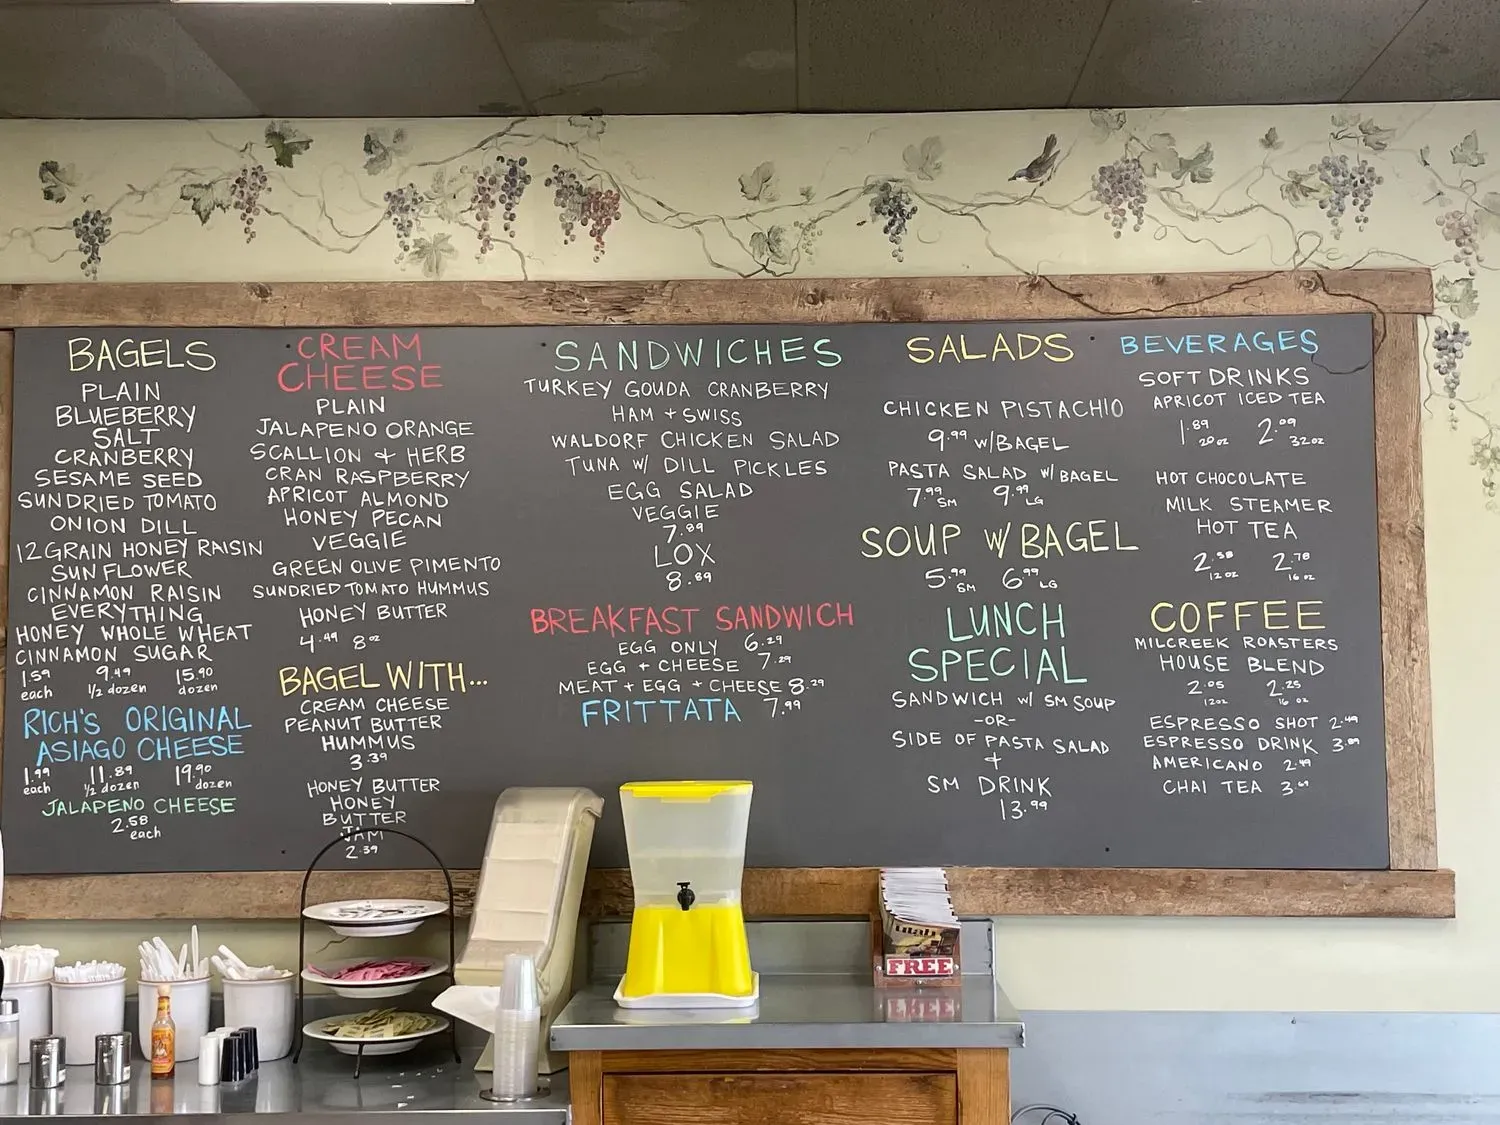 BAGELS
PLAIN
BLUEBERRY
SALT
CRANBERRY
SESAME SEED
SUNDRIED TOMATO
ONION DILL
12 GRAIN HONEY RAISIN
SUNFLOWER
CINNAMON RAISIN
EVERYTHING
HONEY WHOLE WHEAT
CINNAMON SUGAR
1.59 9.49 15.90
each 1/2 dozen dozen
RICH'S ORIGINAL
ASIAGO CHEESE
1.99 11.89 19.90
each 1/2 dozen dozen
JALAPENO CHEESE
2.58
each
CREAM
CHEESE
PLAIN
JALAPENO ORANGE
SCALLION & HERB
CRAN RASPBERRY
APRICOT ALMOND
HONEY PECAN
VEGGIE
GREEN OLIVE PIMENTO
SUNDRIED TOMATO HUMMUS
HONEY BUTTER
4.49 8oz
BAGEL WITH...
CREAM CHEESE
PEANUT BUTTER
HUMMUS
3.39
HONEY BUTTER
HONEY
BUTTER
JAM
2.39
SANDWICHES
TURKEY GOUDA CRANBERRY
HAM + SWISS
WALDORF CHICKEN SALAD
TUNA W/ DILL PICKLES
EGG SALAD
VEGGIE
7.89
LOX
8.89
BREAKFAST SANDWICH
EGG ONLY 6.29
EGG + CHEESE 7.29
MEAT + EGG + CHEESE 8.29
FRITTATA 7.99
SALADS
CHICKEN PISTACHIO
9.99 W/BAGEL
PASTA SALAD W/BAGEL
7.99 SM 9.99 LG
SOUP W/BAGEL
5.99 SM 6.99 LG
LUNCH
SPECIAL
SANDWICH W/ SM SOUP
-OR-
SIDE OF PASTA SALAD
+
SM DRINK
13.99
BEVERAGES
SOFT DRINKS
APRICOT ICED TEA
1.89 20oz 2.09 32oz
HOT CHOCOLATE
MILK STEAMER
HOT TEA
2.58 2.78
12 oz 16 oz
COFFEE
MILCREEK ROASTERS
HOUSE BLEND
2.05 2.25
12oz 16 oz
ESPRESSO SHOT 2.49
ESPRESSO DRINK 3.09
AMERICANO 2.49
CHAI TEA 3.09
utah
FREE